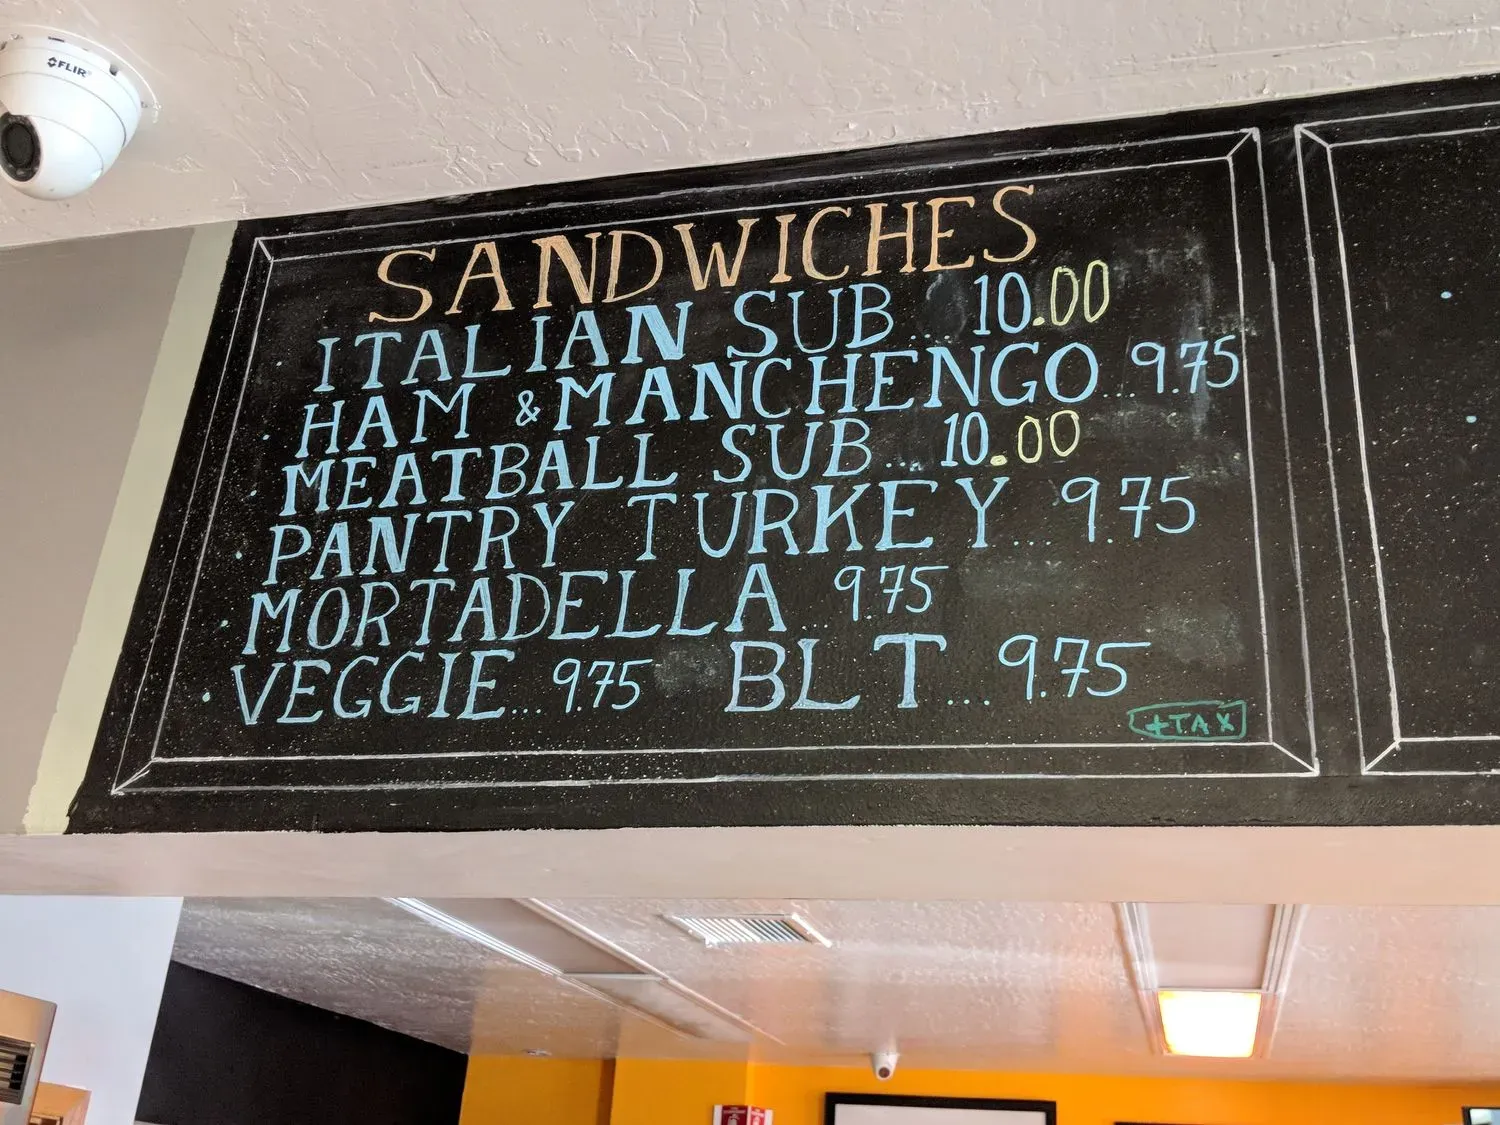 FLIR
SANDWICHES
ITALIAN SUB... 10.00
HAM & MANCHENGO... 9.75
MEATBALL SUB... 10.00
PANTRY TURKEY... 9.75
MORTADELLA... 9.75
VEGGIE... 9.75 BLT... 9.75
+TAX